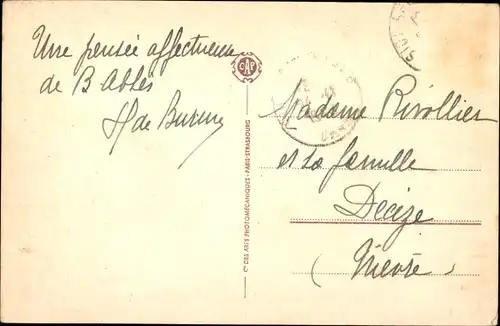 Une pensée affectueuse
de B Abbès
H de
CAP
Cie DES ARTS PHOTOMÉCANIQUES - PARIS-STRASBOURG
Madame Rivollier
et sa famille
Decize
(Nièvre)